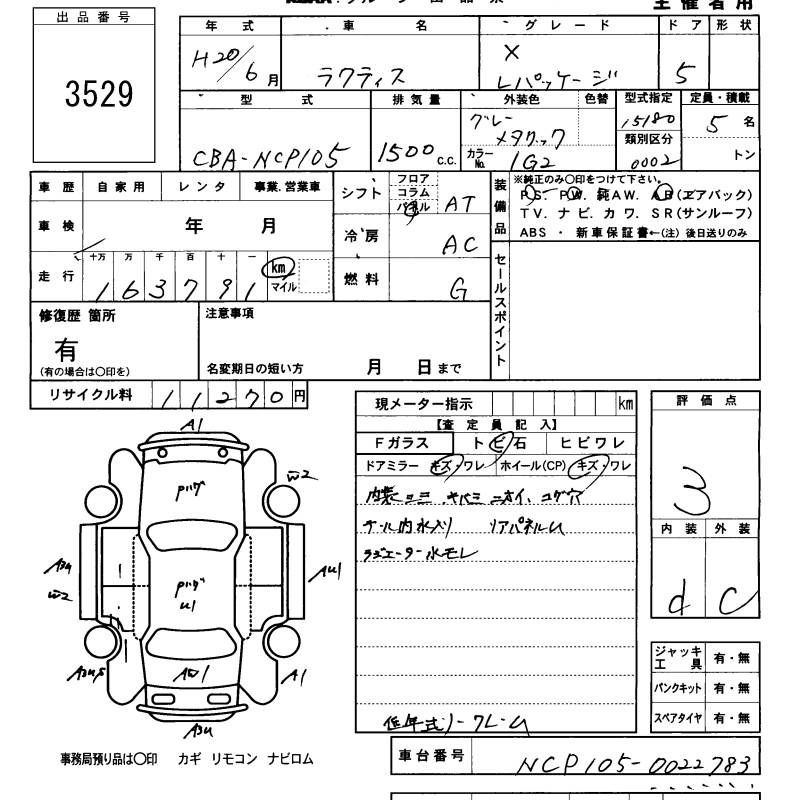 主催者用
出品番号
3529
年式 車名 グレード ドア 形状
H20/6月 ラクティス X Lパッケージ 5
型式 排気量 外装色 色替 型式指定 定員・積載
CBA-NCP105 1500 c.c. グレーメタリック 15180 5名
カラーNo. 1G2 類別区分 0002 トン
車歴 自家用 レンタ 事業.営業車
車検 年 月
走行 十万 万 千 百 十 一
163791 km マイル
シフト フロア コラム パネル AT
冷房 AC
燃料 G
装備品 ※純正のみ○印をつけて下さい。
PS. PW. 純AW. AB(エアバック)
TV. ナビ. カワ. SR(サンルーフ)
ABS ・ 新車保証書←(注) 後日送りのみ
セールスポイント
修復歴 箇所
有
(有の場合は○印を)
注意事項
名変期日の短い方 月 日まで
リサイクル料 11270円
現メーター指示 km
【査定員記入】
Fガラス トビ石 ヒビワレ
ドアミラー キズ・ワレ ホイール(CP) キズ・ワレ
内装ヨゴミ キバミ ニオイ、コゲ穴
ナール内水入り リアパネルU
ラジエーター水モレ
低年式
評価点
3
内装 外装
d C
ジャッキ工具 有・無
パンクキット 有・無
スペアタイヤ 有・無
A1
W2
Pハゲ
A3U
W2
AU1
Pハゲ
U1
A1
AW1
A3U
事務局預り品は○印 カギ リモコン ナビロム
車台番号 NCP105-0022783